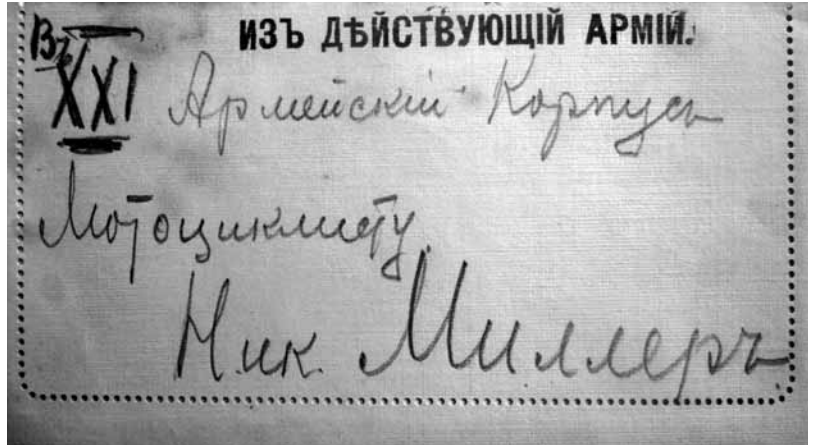 ИЗЪ ДѢЙСТВУЮЩІЙ АРМІЙ.
Въ XXI Армейскій Корпусъ
Мотоциклисту
Ник. Миллеръ